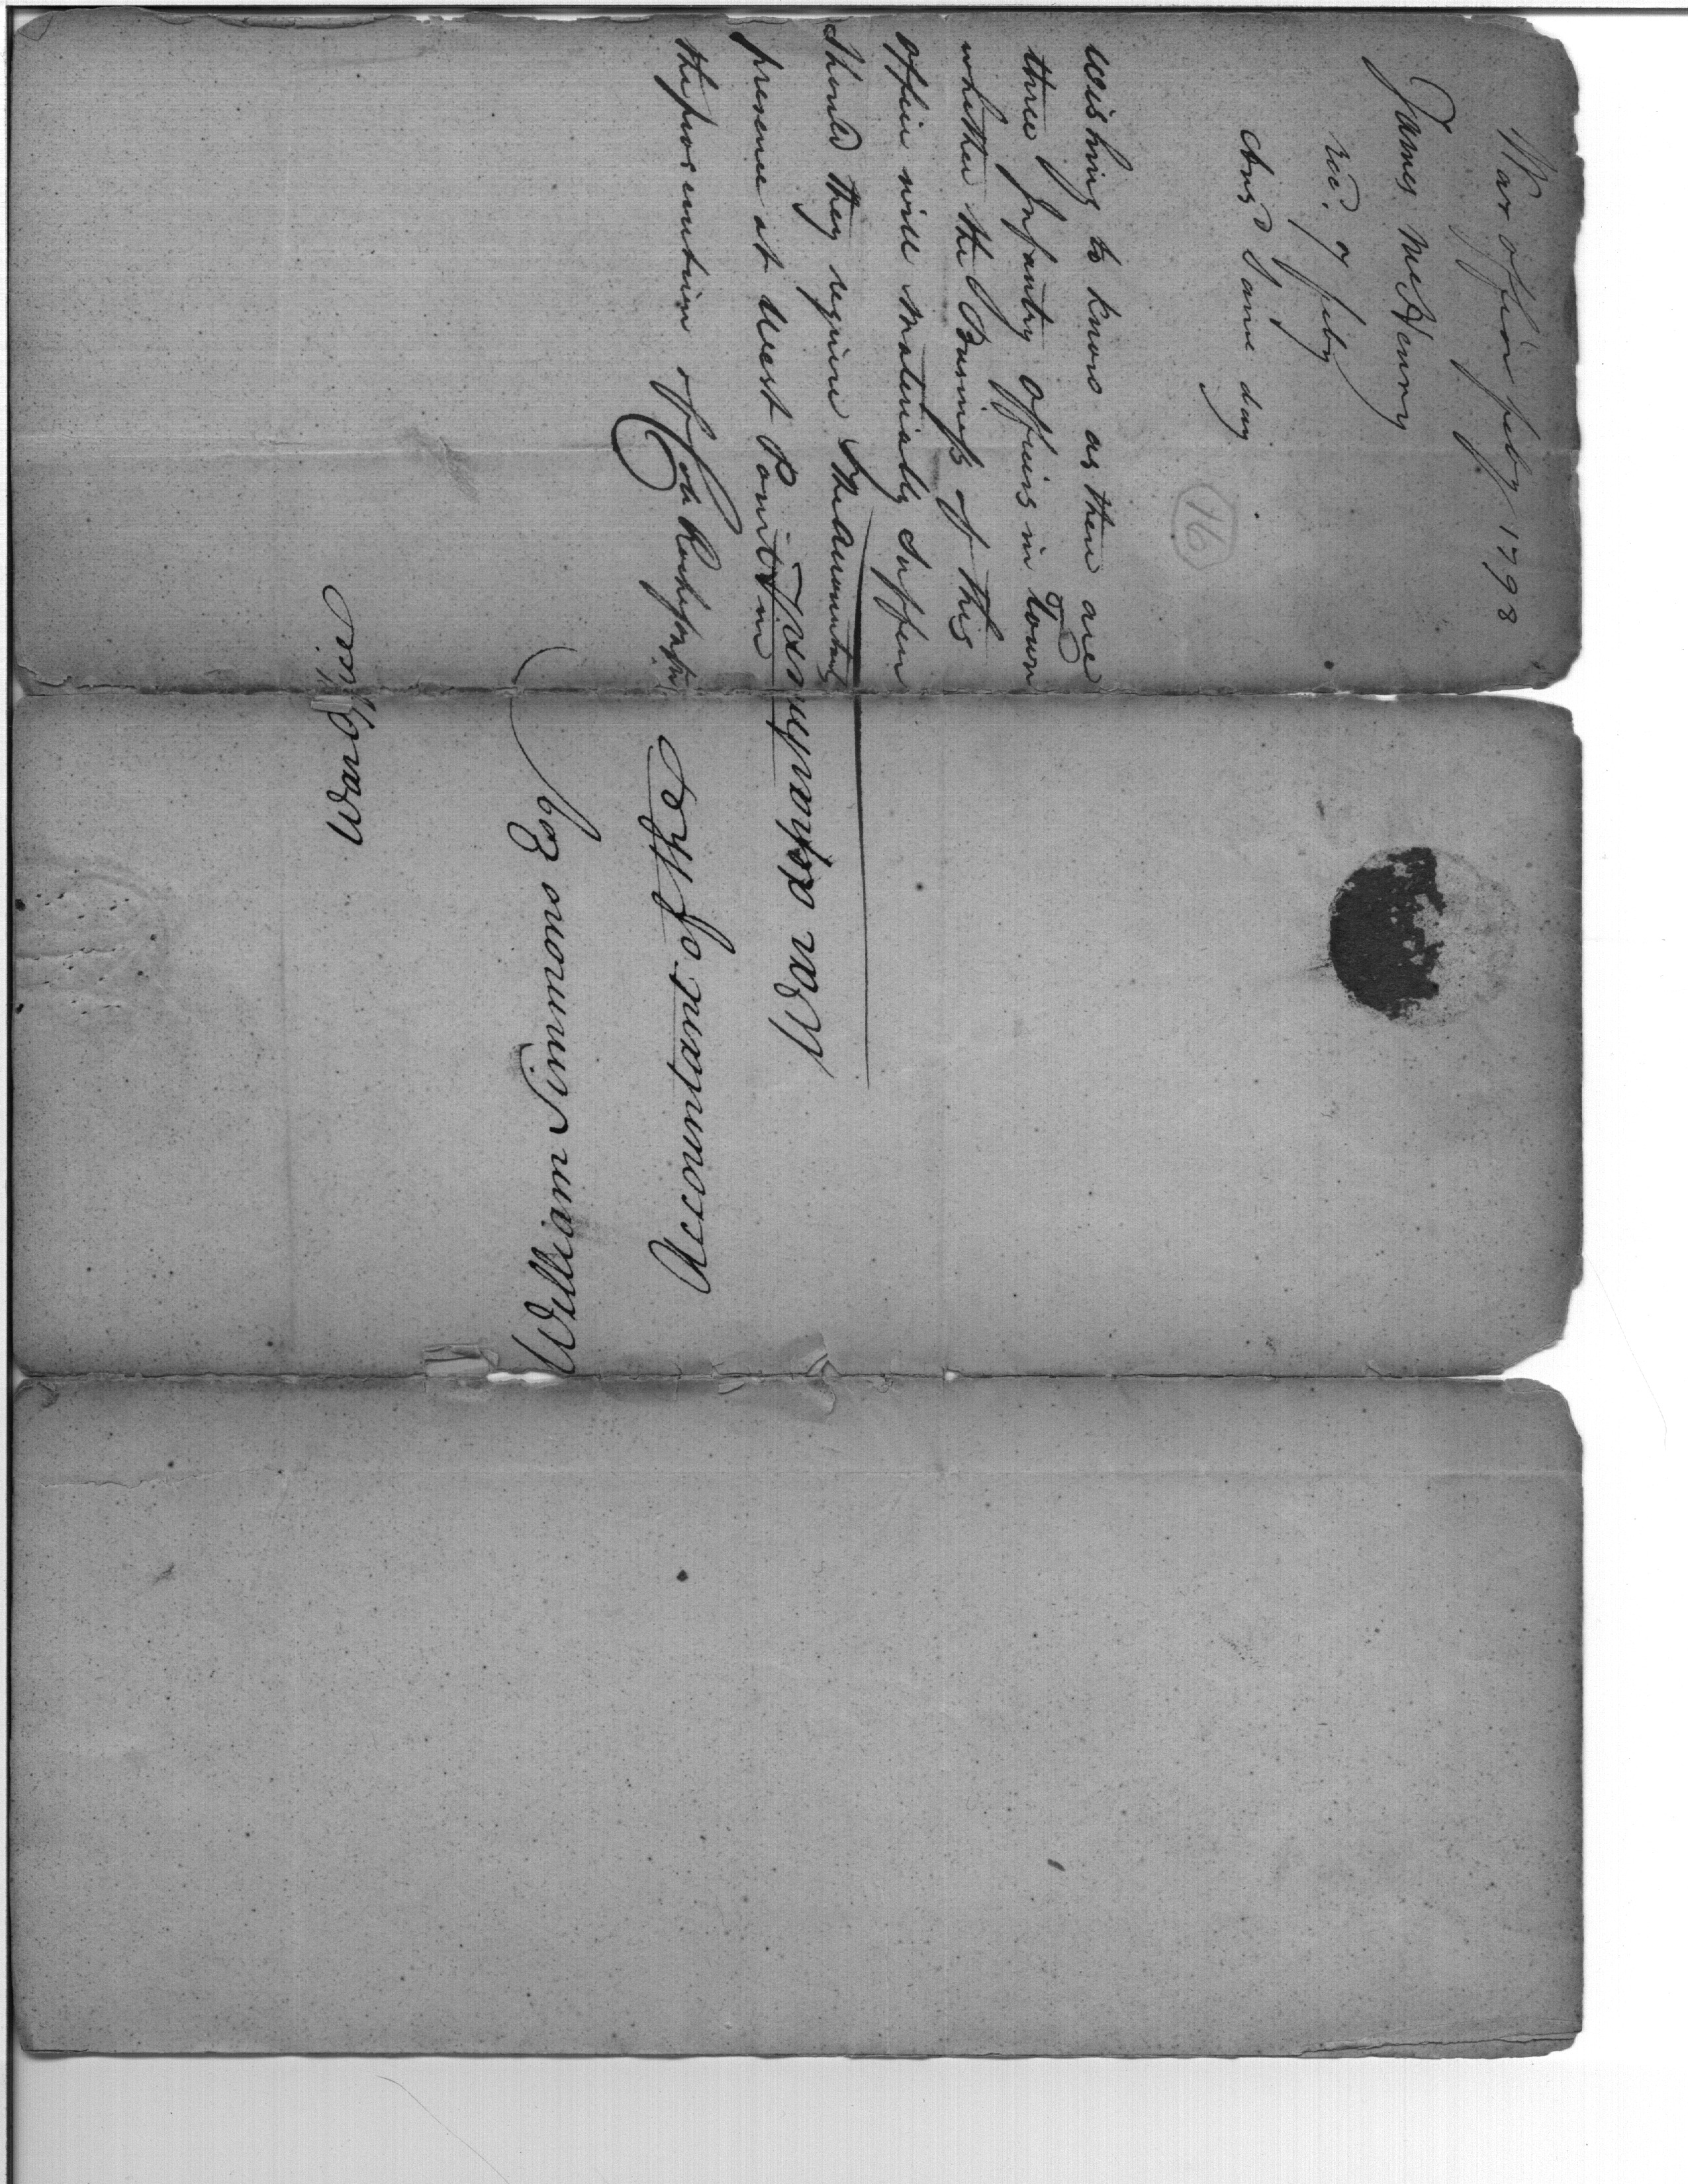 War office feby 1798
James McHenry
recd. 7 feby
Ansd Same day
16
wishing to know as there are
three Infantry officers in Town
whether the Business of this
office will materially suffer
Should they require the Accountants
presence at West Point in
the prosecution of Col. Rochefontain
War department
Accountant of the Dept of
William Simmons Esq
War office